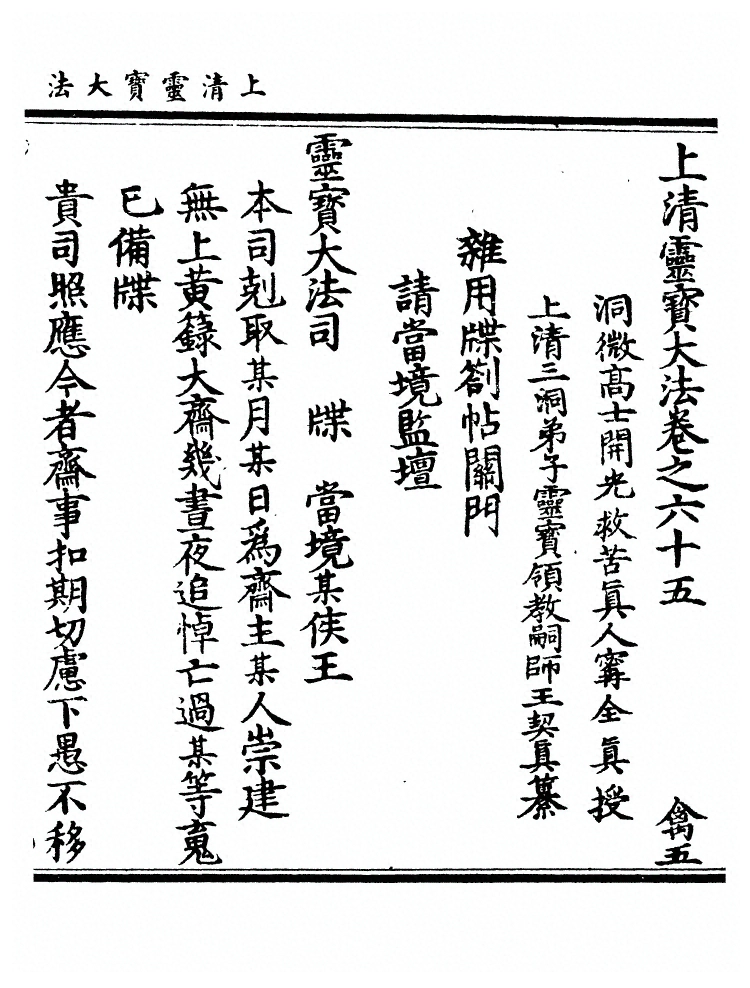 上清靈寶大法
上清靈寶大法卷之六十五　禽五
洞微高士開光救苦眞人甯全眞授
上清三洞弟子靈寶領教嗣師王契眞纂
雜用牒劄帖關門
請當境監壇
靈寶大法司　牒　當境某侯王
本司尅取某月某日爲齋主某人崇建
無上黄籙大齋幾晝夜追悼亡過某等䰟
已備牒
貴司照應今者齋事扣期切慮下愚不移